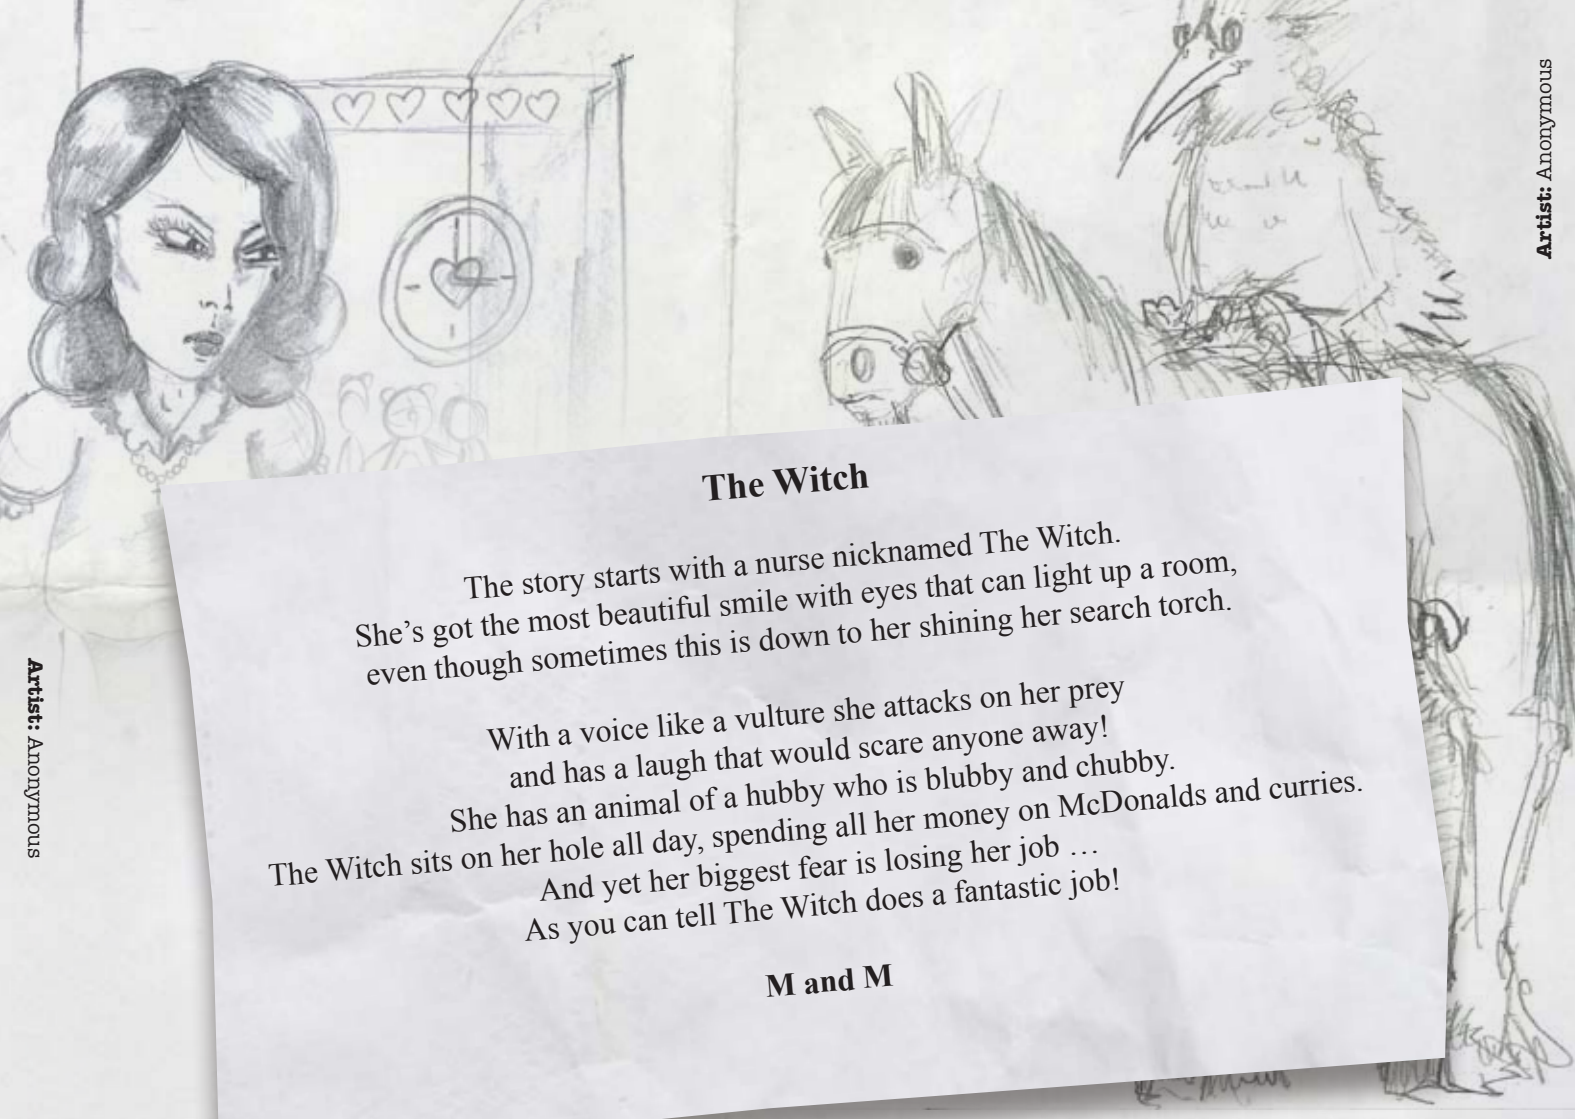 Artist: Anonymous
Artist: Anonymous
The Witch
The story starts with a nurse nicknamed The Witch.
She’s got the most beautiful smile with eyes that can light up a room,
even though sometimes this is down to her shining her search torch.
With a voice like a vulture she attacks on her prey
and has a laugh that would scare anyone away!
She has an animal of a hubby who is blubby and chubby.
The Witch sits on her hole all day, spending all her money on McDonalds and curries.
And yet her biggest fear is losing her job …
As you can tell The Witch does a fantastic job!
M and M